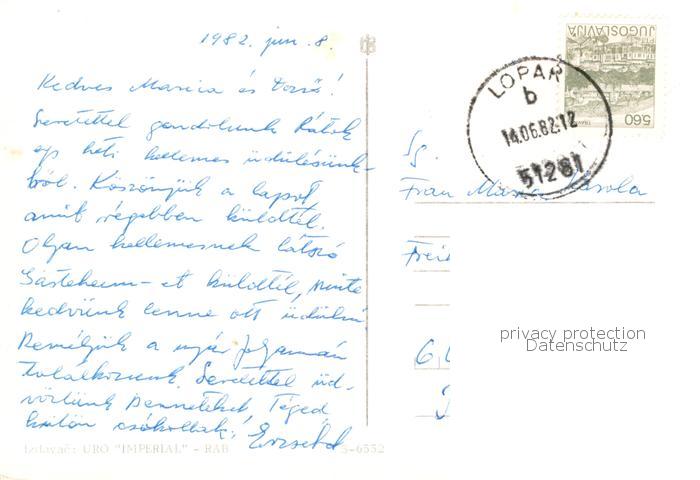 1982. jun. 8.
Kedves Marica és Dezső!
Szeretettel gondolunk Rátok
egy heti kellemes üdülésünk-
ből. Köszönjük a lapot
amit régebben küldtél.
Olyan kellemesnek látszó
Gästeheim-et küldtél, szinte
kedvünk lenne ott üdülni.
Reméljük a nyár folyamán
találkozunk. Szeretettel üd-
vözlünk Benneteket, Téged
külön csókollak! Erzsébet
Izdavač: URO "IMPERIAL" - RAB
S-6552
JUGOSLAVIJA
5,60
LOPAR
b
14.06.82.12
51281
Sg.
Frau Maria
privacy protection
Datenschutz